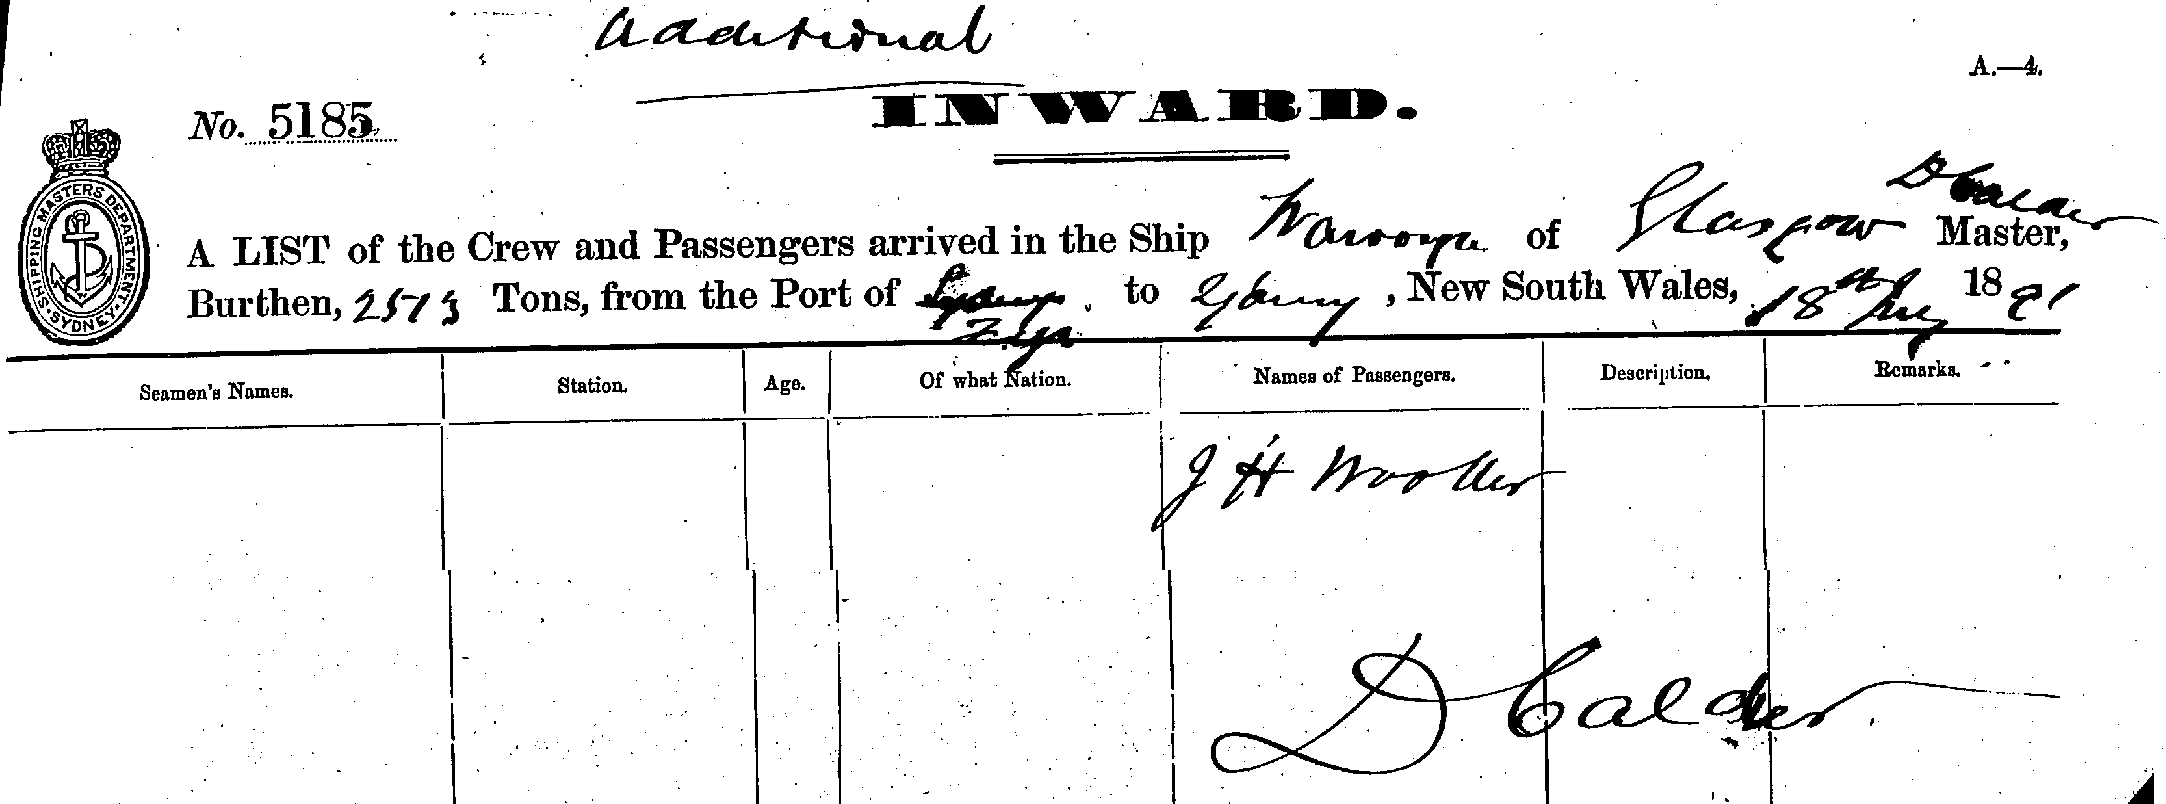 Additional
A.—4.
No. 5185
INWARD.
SHIPPING MASTERS DEPARTMENT. SYDNEY
D Calder
A LIST of the Crew and Passengers arrived in the Ship Warooga of Glasgow Master,
Burthen, 2573 Tons, from the Port of Sydney to Sydney, New South Wales, 18th 1891
Fiji
Seamen's Names. Station. Age. Of what Nation. Names of Passengers. Description. Remarks.
J H Wooller
D Calder